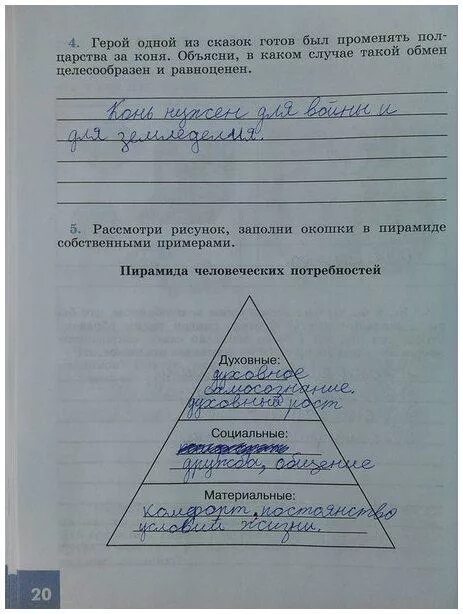 4. Герой одной из сказок готов был променять пол-
царства за коня. Объясни, в каком случае такой обмен
целесообразен и равноценен.
Конь нужен для войны и
для земледелия.
5. Рассмотри рисунок, заполни окошки в пирамиде
собственными примерами.
Пирамида человеческих потребностей
Духовные:
духовное
самосознание.
духовный рост
Социальные:
дружба, общение
Материальные:
комфорт, постоянство
условий жизни.
20